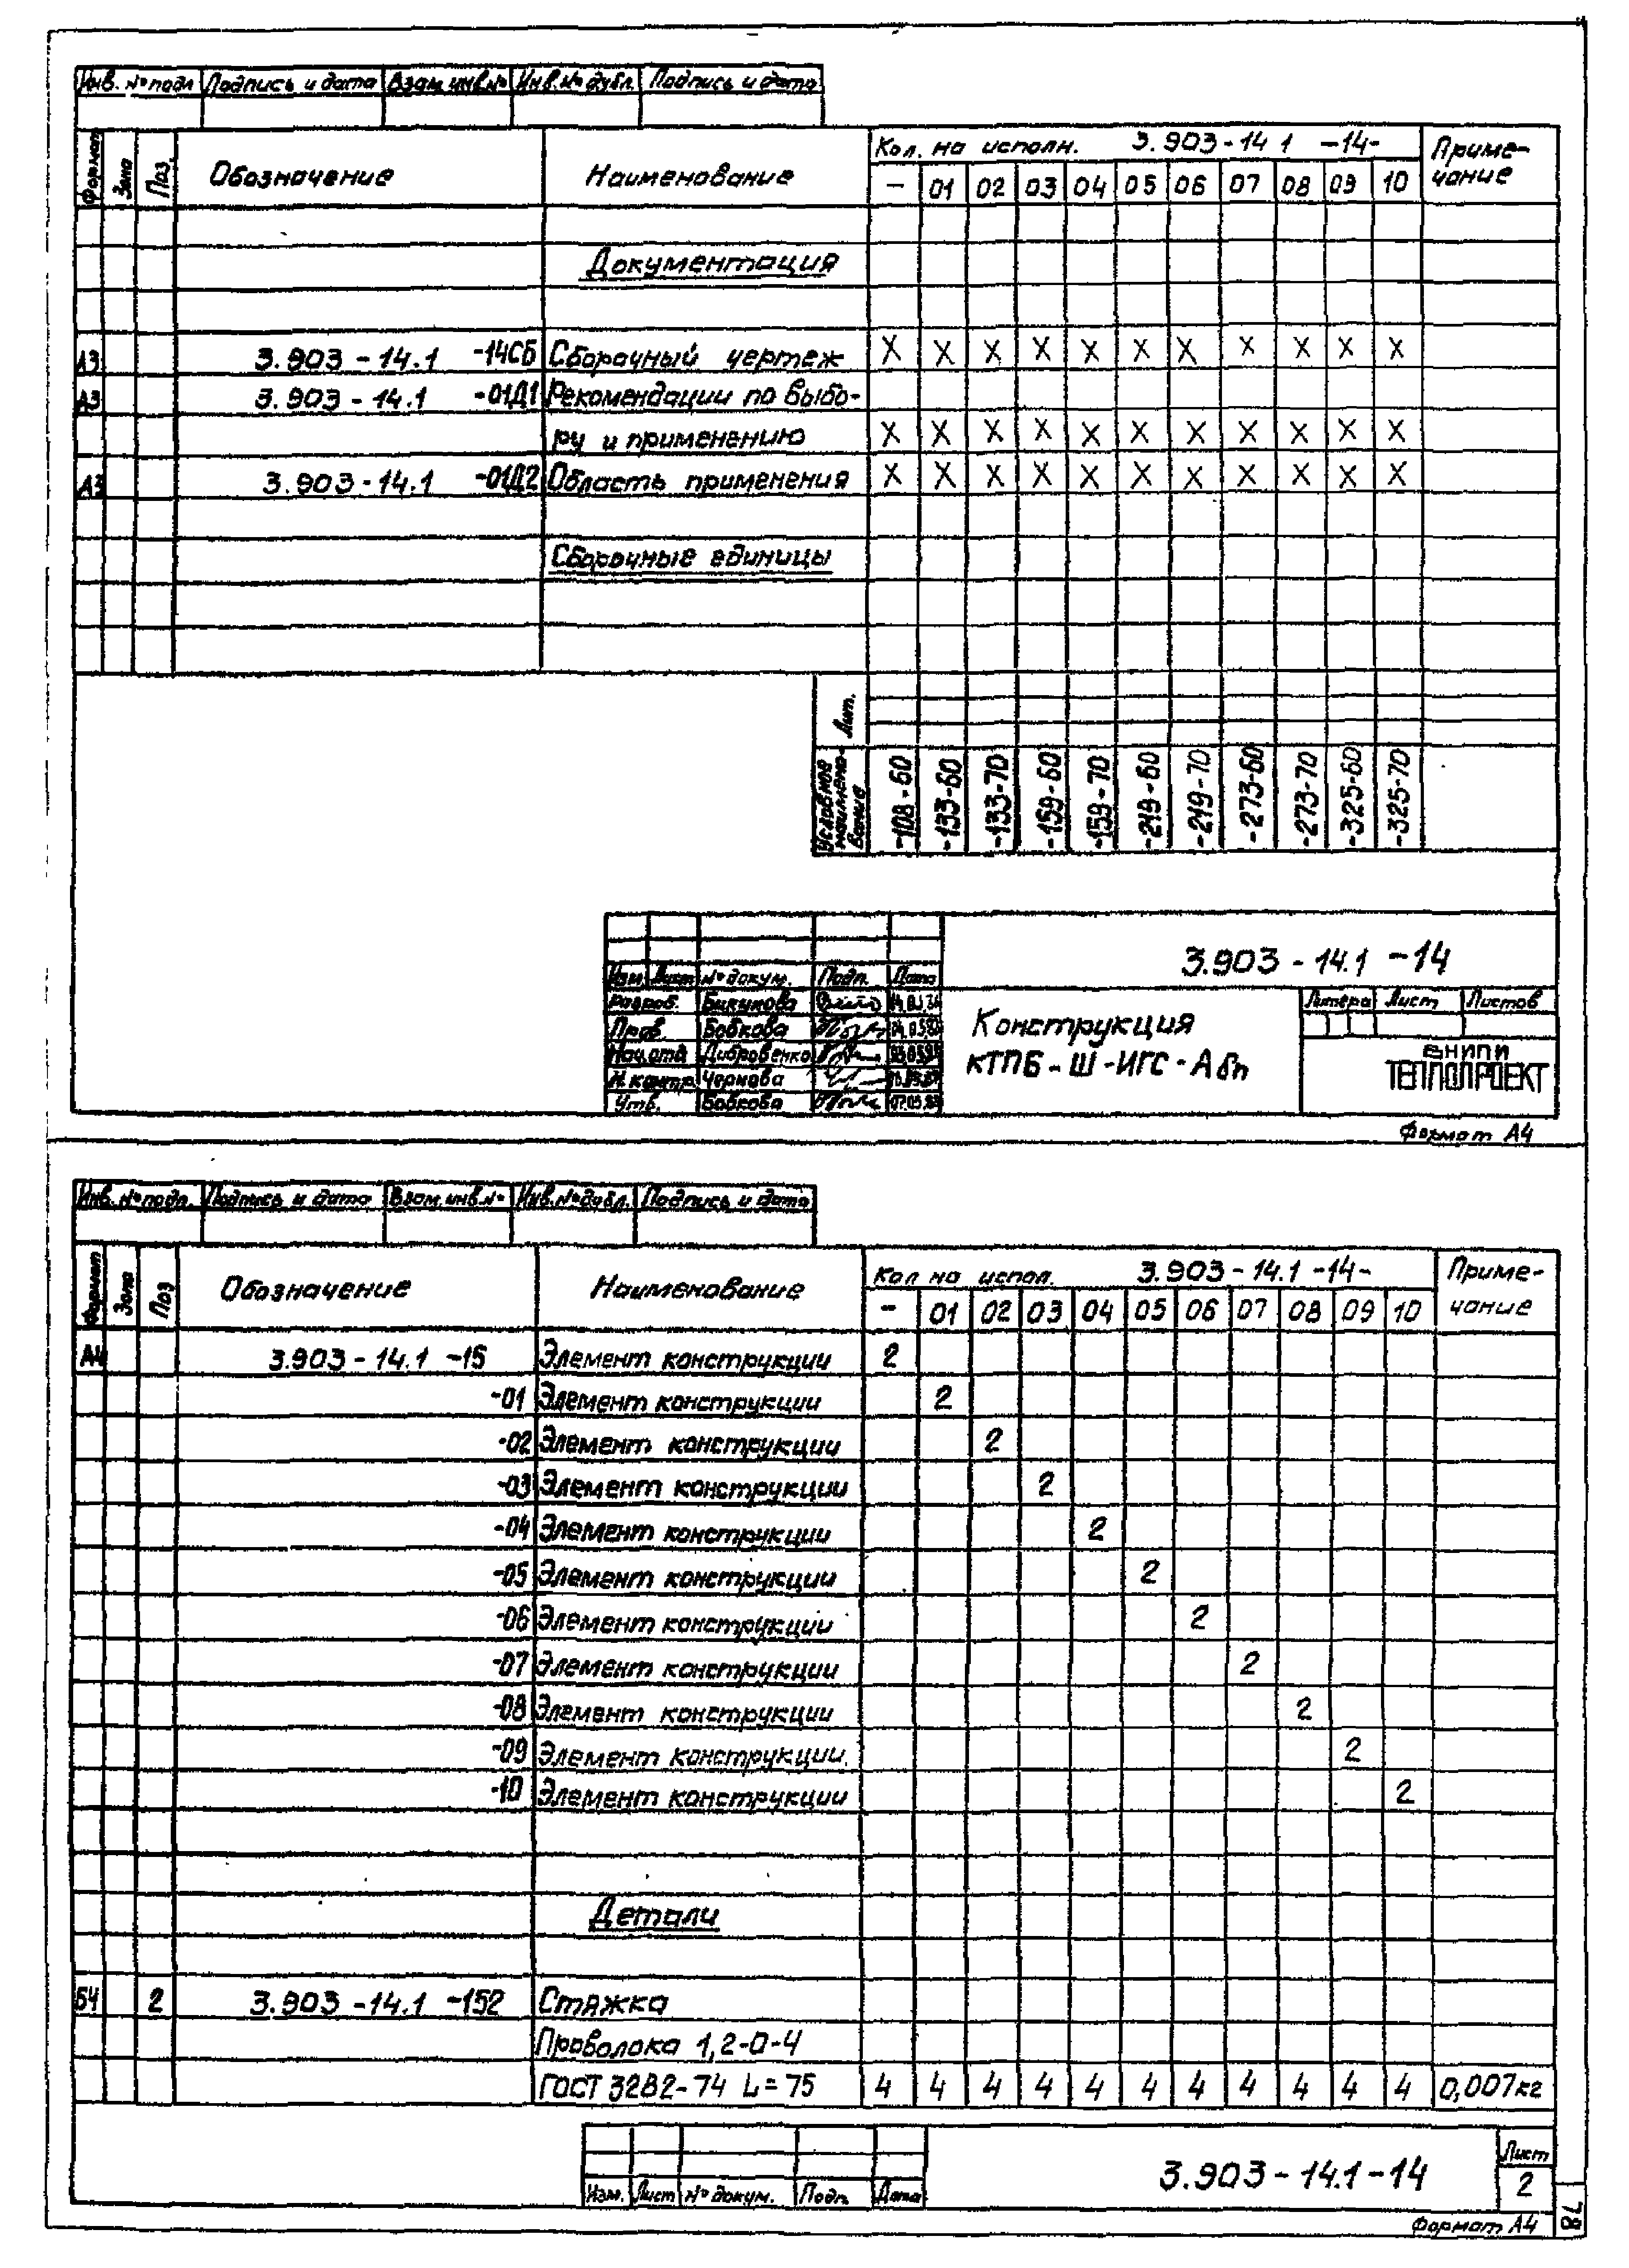 Инв. № подл Подпись и дата Взам. инв. № Инв. № дубл. Подпись и дата
Формат Зона Поз. Обозначение Наименование Кол. на исполн. 3.903-14 1 -14- Приме-
чание
- 01 02 03 04 05 06 07 08 09 10
Документация
А3 3.903-14.1 -14СБ Сборочный чертеж X X X X X X X X X X X
А3 3.903-14.1 -01Д1 Рекомендации по выбо-
ру и применению X X X X X X X X X X X
А3 3.903-14.1 -01Д2 Область применения X X X X X X X X X X X
Сборочные единицы
Лит.
Условное наимено-
вание -108-60 -133-60 -133-70 -159-60 -159-70 -219-60 -219-70 -273-60 -273-70 -325-60 -325-70
3.903-14.1-14
Изм. Лист № докум. Подп. Дата
Разраб. Бикунова
Пров. Бобкова
Нач.отд Дибровенко
Н.контр. Чернова
Утв. Бобкова
Конструкция
КТПБ-Ш-ИГС-Абп
Литера Лист Листов
ВНИПИ
ТЕПЛОПРОЕКТ
Формат А4
Инв. № подл. Подпись и дата Взам. инв. № Инв. № дубл. Подпись и дата
Формат Зона Поз Обозначение Наименование Кол на испол. 3.903-14.1-14- Приме-
чание
- 01 02 03 04 05 06 07 08 09 10
А4 3.903-14.1 -15 Элемент конструкции 2
-01 Элемент конструкции 2
-02 Элемент конструкции 2
-03 Элемент конструкции 2
-04 Элемент конструкции 2
-05 Элемент конструкции 2
-06 Элемент конструкции 2
-07 Элемент конструкции 2
-08 Элемент конструкции 2
-09 Элемент конструкции 2
-10 Элемент конструкции 2
Детали
Б4 2 3.903-14.1 -152 Стяжка
Проволока 1,2-0-4
ГОСТ 3282-74 L=75 4 4 4 4 4 4 4 4 4 4 4 0,007кг
Изм. Лист № докум. Подп. Дата
3.903-14.1-14
Лист
2
Формат А4
78